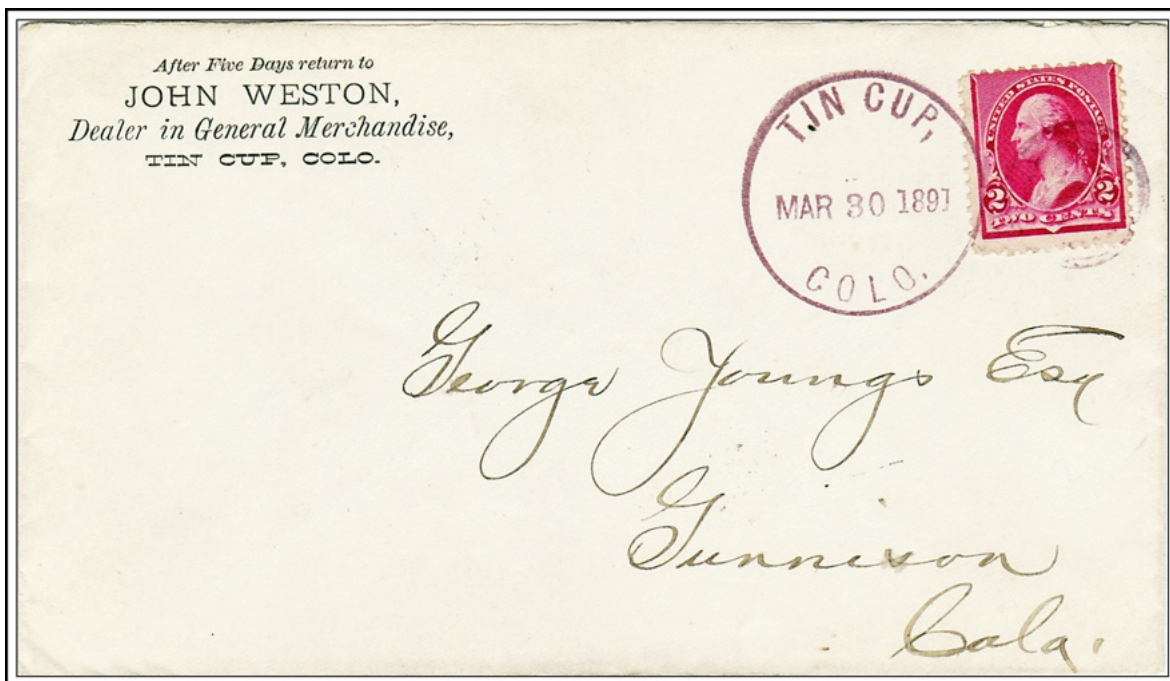 After Five Days return to
JOHN WESTON,
Dealer in General Merchandise,
TIN CUP, COLO.
TIN CUP,
MAR 30 1891
COLO.
UNITED STATES POSTAGE
2 2
TWO CENTS
George Youngs Esq
Gunnison
Colo.